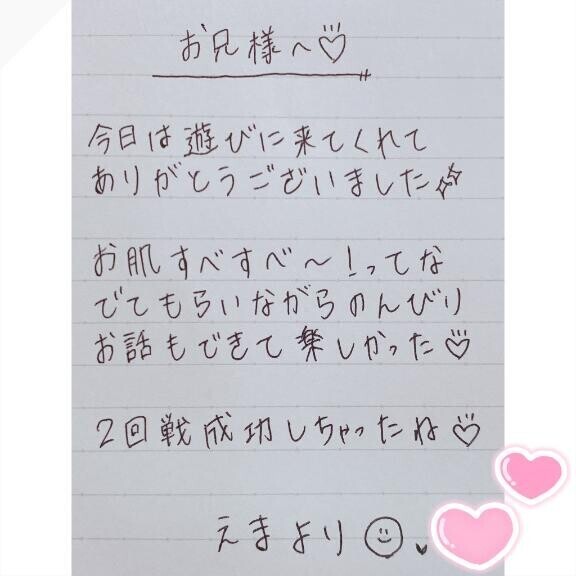 お兄様へ♡
今日は遊びに来てくれて
ありがとうございました✨
お肌すべすべ〜!ってな
でてもらいながらのんびり
お話もできて楽しかった♡
2回戦成功しちゃったね♡
えまより